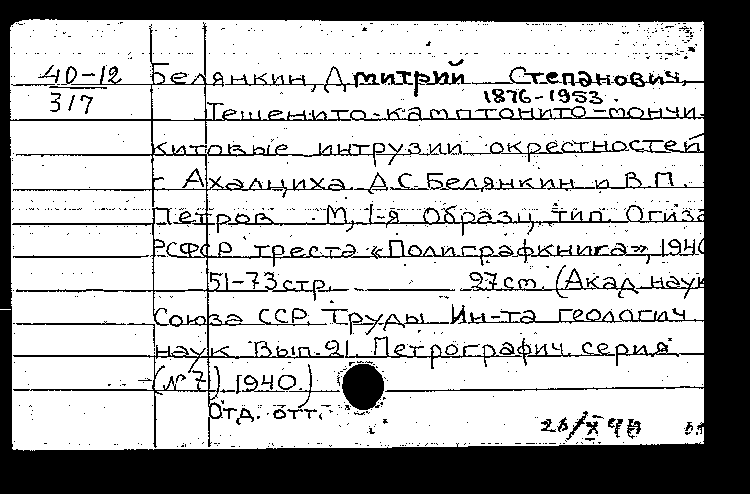 40-12 Белянкин, Дмитрий Степанович,
317 1876-1953.
Тешенито-камптонито-мончи-
китовые интрузии окрестностей
г. Ахалциха. Д.С. Белянкин и В.П.
Петров. М, 1-я Образц. тип. Огиза
РСФСР треста «Полиграфкнига», 1940
51-73 стр. 27 см. (Акад. наук
Союза ССР. Труды Ин-та геологич
наук. Вып. 21. Петрографич. серия
(№7). 1940.)
Отд. отт.